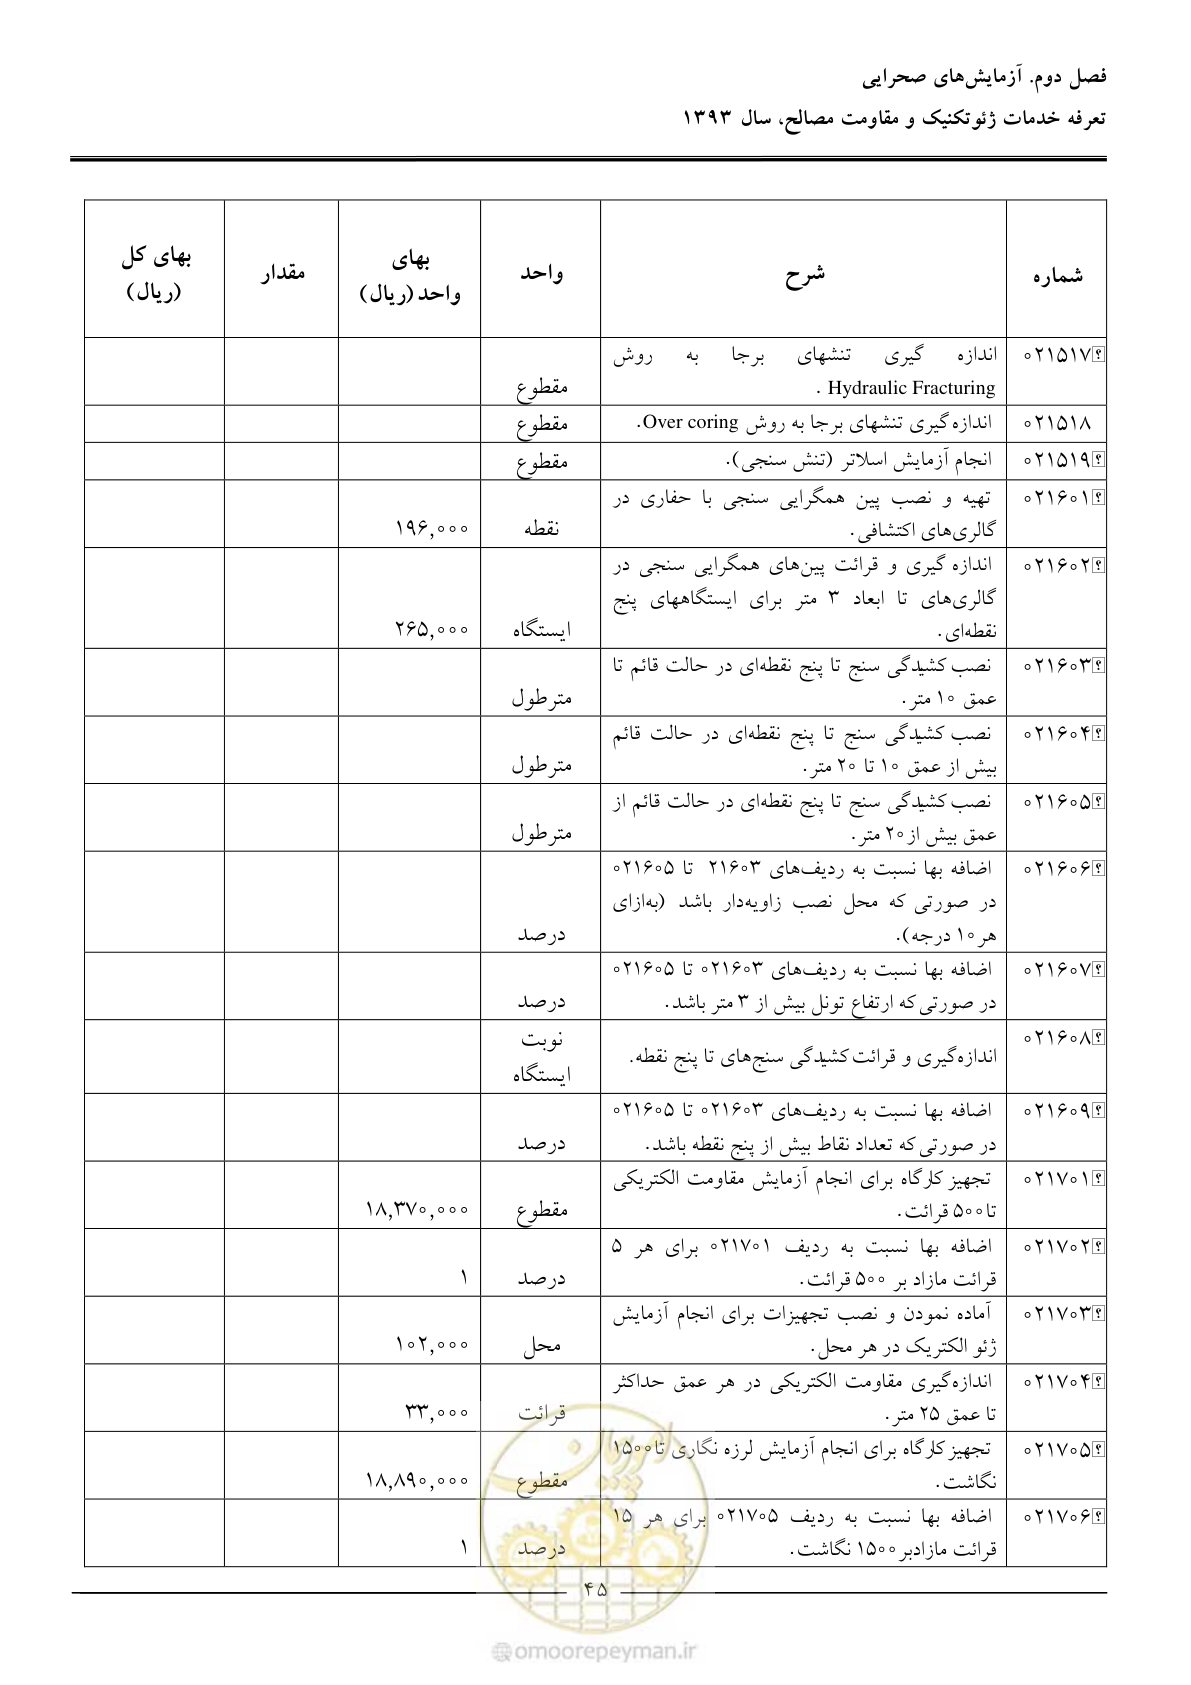 فصل دوم. آزمایش‌های صحرایی
تعرفه خدمات ژئوتکنیک و مقاومت مصالح، سال ۱۳۹۳
شماره شرح واحد بهای واحد (ریال) مقدار بهای کل (ریال)
۰۲۱۵۱۷ اندازه گیری تنشهای برجا به روش
Hydraulic Fracturing . مقطوع
۰۲۱۵۱۸ اندازه‌گیری تنشهای برجا به روش Over coring. مقطوع
۰۲۱۵۱۹ انجام آزمایش اسلاتر (تنش سنجی). مقطوع
۰۲۱۶۰۱ تهیه و نصب پین همگرایی سنجی با حفاری در
گالری‌های اکتشافی. نقطه ۱۹۶,۰۰۰
۰۲۱۶۰۲ اندازه گیری و قرائت پین‌های همگرایی سنجی در
گالری‌های تا ابعاد ۳ متر برای ایستگاههای پنج
نقطه‌ای. ایستگاه ۲۶۵,۰۰۰
۰۲۱۶۰۳ نصب کشیدگی سنج تا پنج نقطه‌ای در حالت قائم تا
عمق ۱۰ متر. مترطول
۰۲۱۶۰۴ نصب کشیدگی سنج تا پنج نقطه‌ای در حالت قائم
بیش از عمق ۱۰ تا ۲۰ متر. مترطول
۰۲۱۶۰۵ نصب کشیدگی سنج تا پنج نقطه‌ای در حالت قائم از
عمق بیش از۲۰ متر. مترطول
۰۲۱۶۰۶ اضافه بها نسبت به ردیف‌های ۲۱۶۰۳ تا ۰۲۱۶۰۵
در صورتی که محل نصب زاویه‌دار باشد (به‌ازای
هر۱۰ درجه). درصد
۰۲۱۶۰۷ اضافه بها نسبت به ردیف‌های ۰۲۱۶۰۳ تا ۰۲۱۶۰۵
در صورتی‌که ارتفاع تونل بیش از ۳ متر باشد. درصد
۰۲۱۶۰۸ اندازه‌گیری و قرائت کشیدگی سنج‌های تا پنج نقطه. نوبت
ایستگاه
۰۲۱۶۰۹ اضافه بها نسبت به ردیف‌های ۰۲۱۶۰۳ تا ۰۲۱۶۰۵
در صورتی‌که تعداد نقاط بیش از پنج نقطه باشد. درصد
۰۲۱۷۰۱ تجهیز کارگاه برای انجام آزمایش مقاومت الکتریکی
تا۵۰۰ قرائت. مقطوع ۱۸,۳۷۰,۰۰۰
۰۲۱۷۰۲ اضافه بها نسبت به ردیف ۰۲۱۷۰۱ برای هر ۵
قرائت مازاد بر ۵۰۰ قرائت. درصد ۱
۰۲۱۷۰۳ آماده نمودن و نصب تجهیزات برای انجام آزمایش
ژئو الکتریک در هر محل. محل ۱۰۲,۰۰۰
۰۲۱۷۰۴ اندازه‌گیری مقاومت الکتریکی در هر عمق حداکثر
تا عمق ۲۵ متر. قرائت ۳۳,۰۰۰
۰۲۱۷۰۵ تجهیز کارگاه برای انجام آزمایش لرزه نگاری تا۱۵۰۰
نگاشت. مقطوع ۱۸,۸۹۰,۰۰۰
۰۲۱۷۰۶ اضافه بها نسبت به ردیف ۰۲۱۷۰۵ برای هر ۱۵
قرائت مازادبر۱۵۰۰ نگاشت. درصد ۱
۴۵
امورپیمان
@omoorepeyman.ir